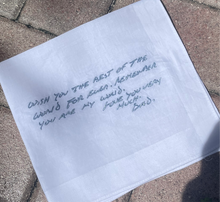 WISH YOU THE BEST OF THE
WORLD FOR EVER. REMEMBER
YOU ARE MY WORLD.
LOVE YOU VERY
MUCH.
DAD.